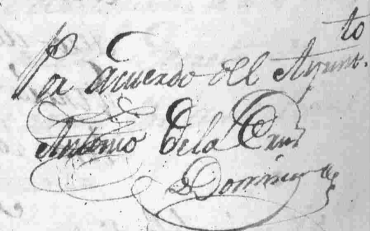 Por acuerdo del Ayunt.to
Antonio de la Cruz
Dominguez